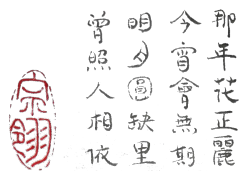 那年花正麗
今宵會無期
明月圓缺里
曾照人相依
宗翎